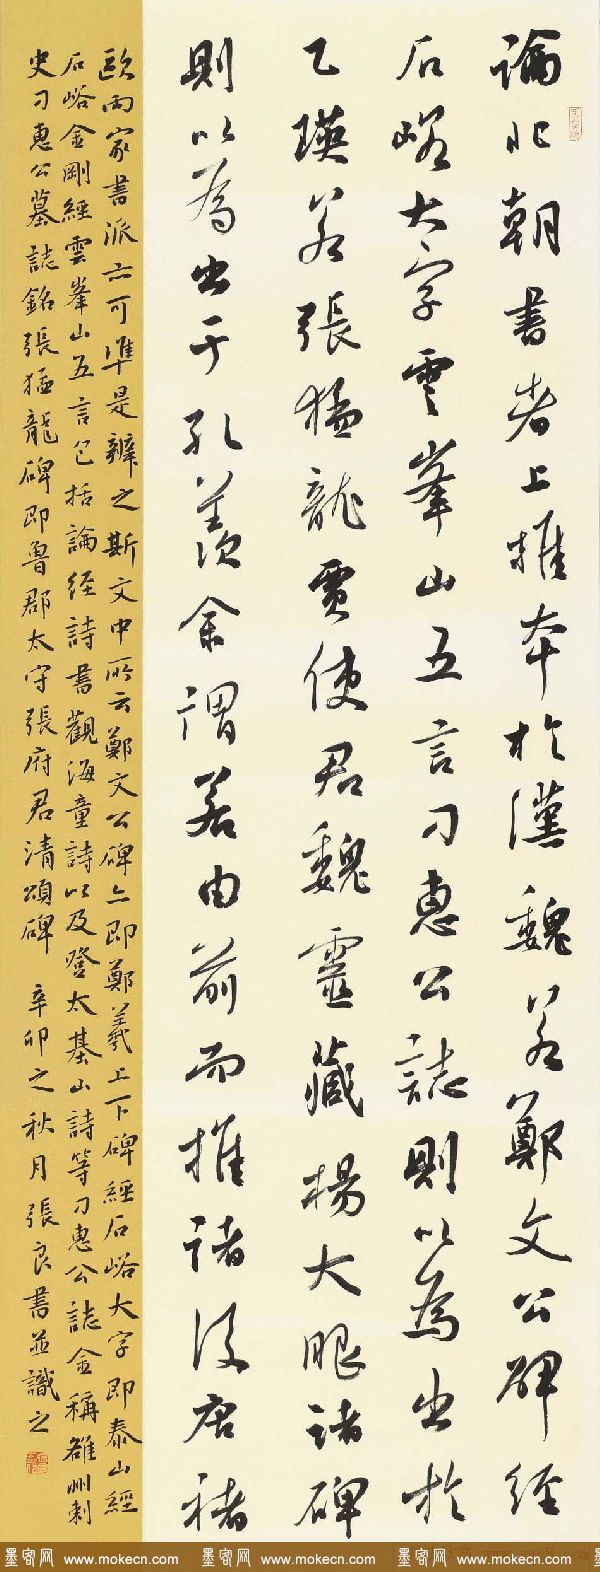 論北朝書者上推本於漢魏若鄭文公碑經
石峪大字雲峯山五言刁惠公誌則以為出於
乙瑛若張猛龍賈使君魏靈藏楊大眼諸碑
則以為出于孔羨余謂若由前而推諸後唐褚
歐兩家書派亦可準是辨之斯文中所云鄭文公碑亦即鄭羲上下碑經石峪大字即泰山經
石峪金剛經雲峯山五言包括論經詩書觀海童詩以及登太基山詩等刁惠公誌全稱雒州刺
史刁惠公墓誌銘張猛龍碑即魯郡太守張府君清頌碑 辛卯之秋月張良書並識之
墨客网 www.mokecn.com 墨客网 www.mokecn.com 墨客网 www.mokecn.com